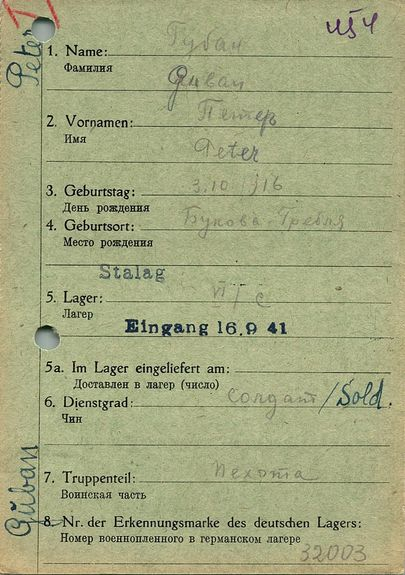 Peter
Губан
1. Name:
Фамилия
Guban
Петер
2. Vornamen:
Имя
Peter
3. Geburtstag: 3.10 1916
День рождения
4. Geburtsort: Букова-Гребля
Место рождения
Stalag
5. Lager: VI/C
Лагер
Eingang 16.9 41
5a. Im Lager eingeliefert am:
Доставлен в лагер (число)
6. Dienstgrad: Солдат/Sold.
Чин
Guban
7. Truppenteil: Пехота
Воинская часть
8. Nr. der Erkennungsmarke des deutschen Lagers:
Номер военнопленного в германском лагере
32003